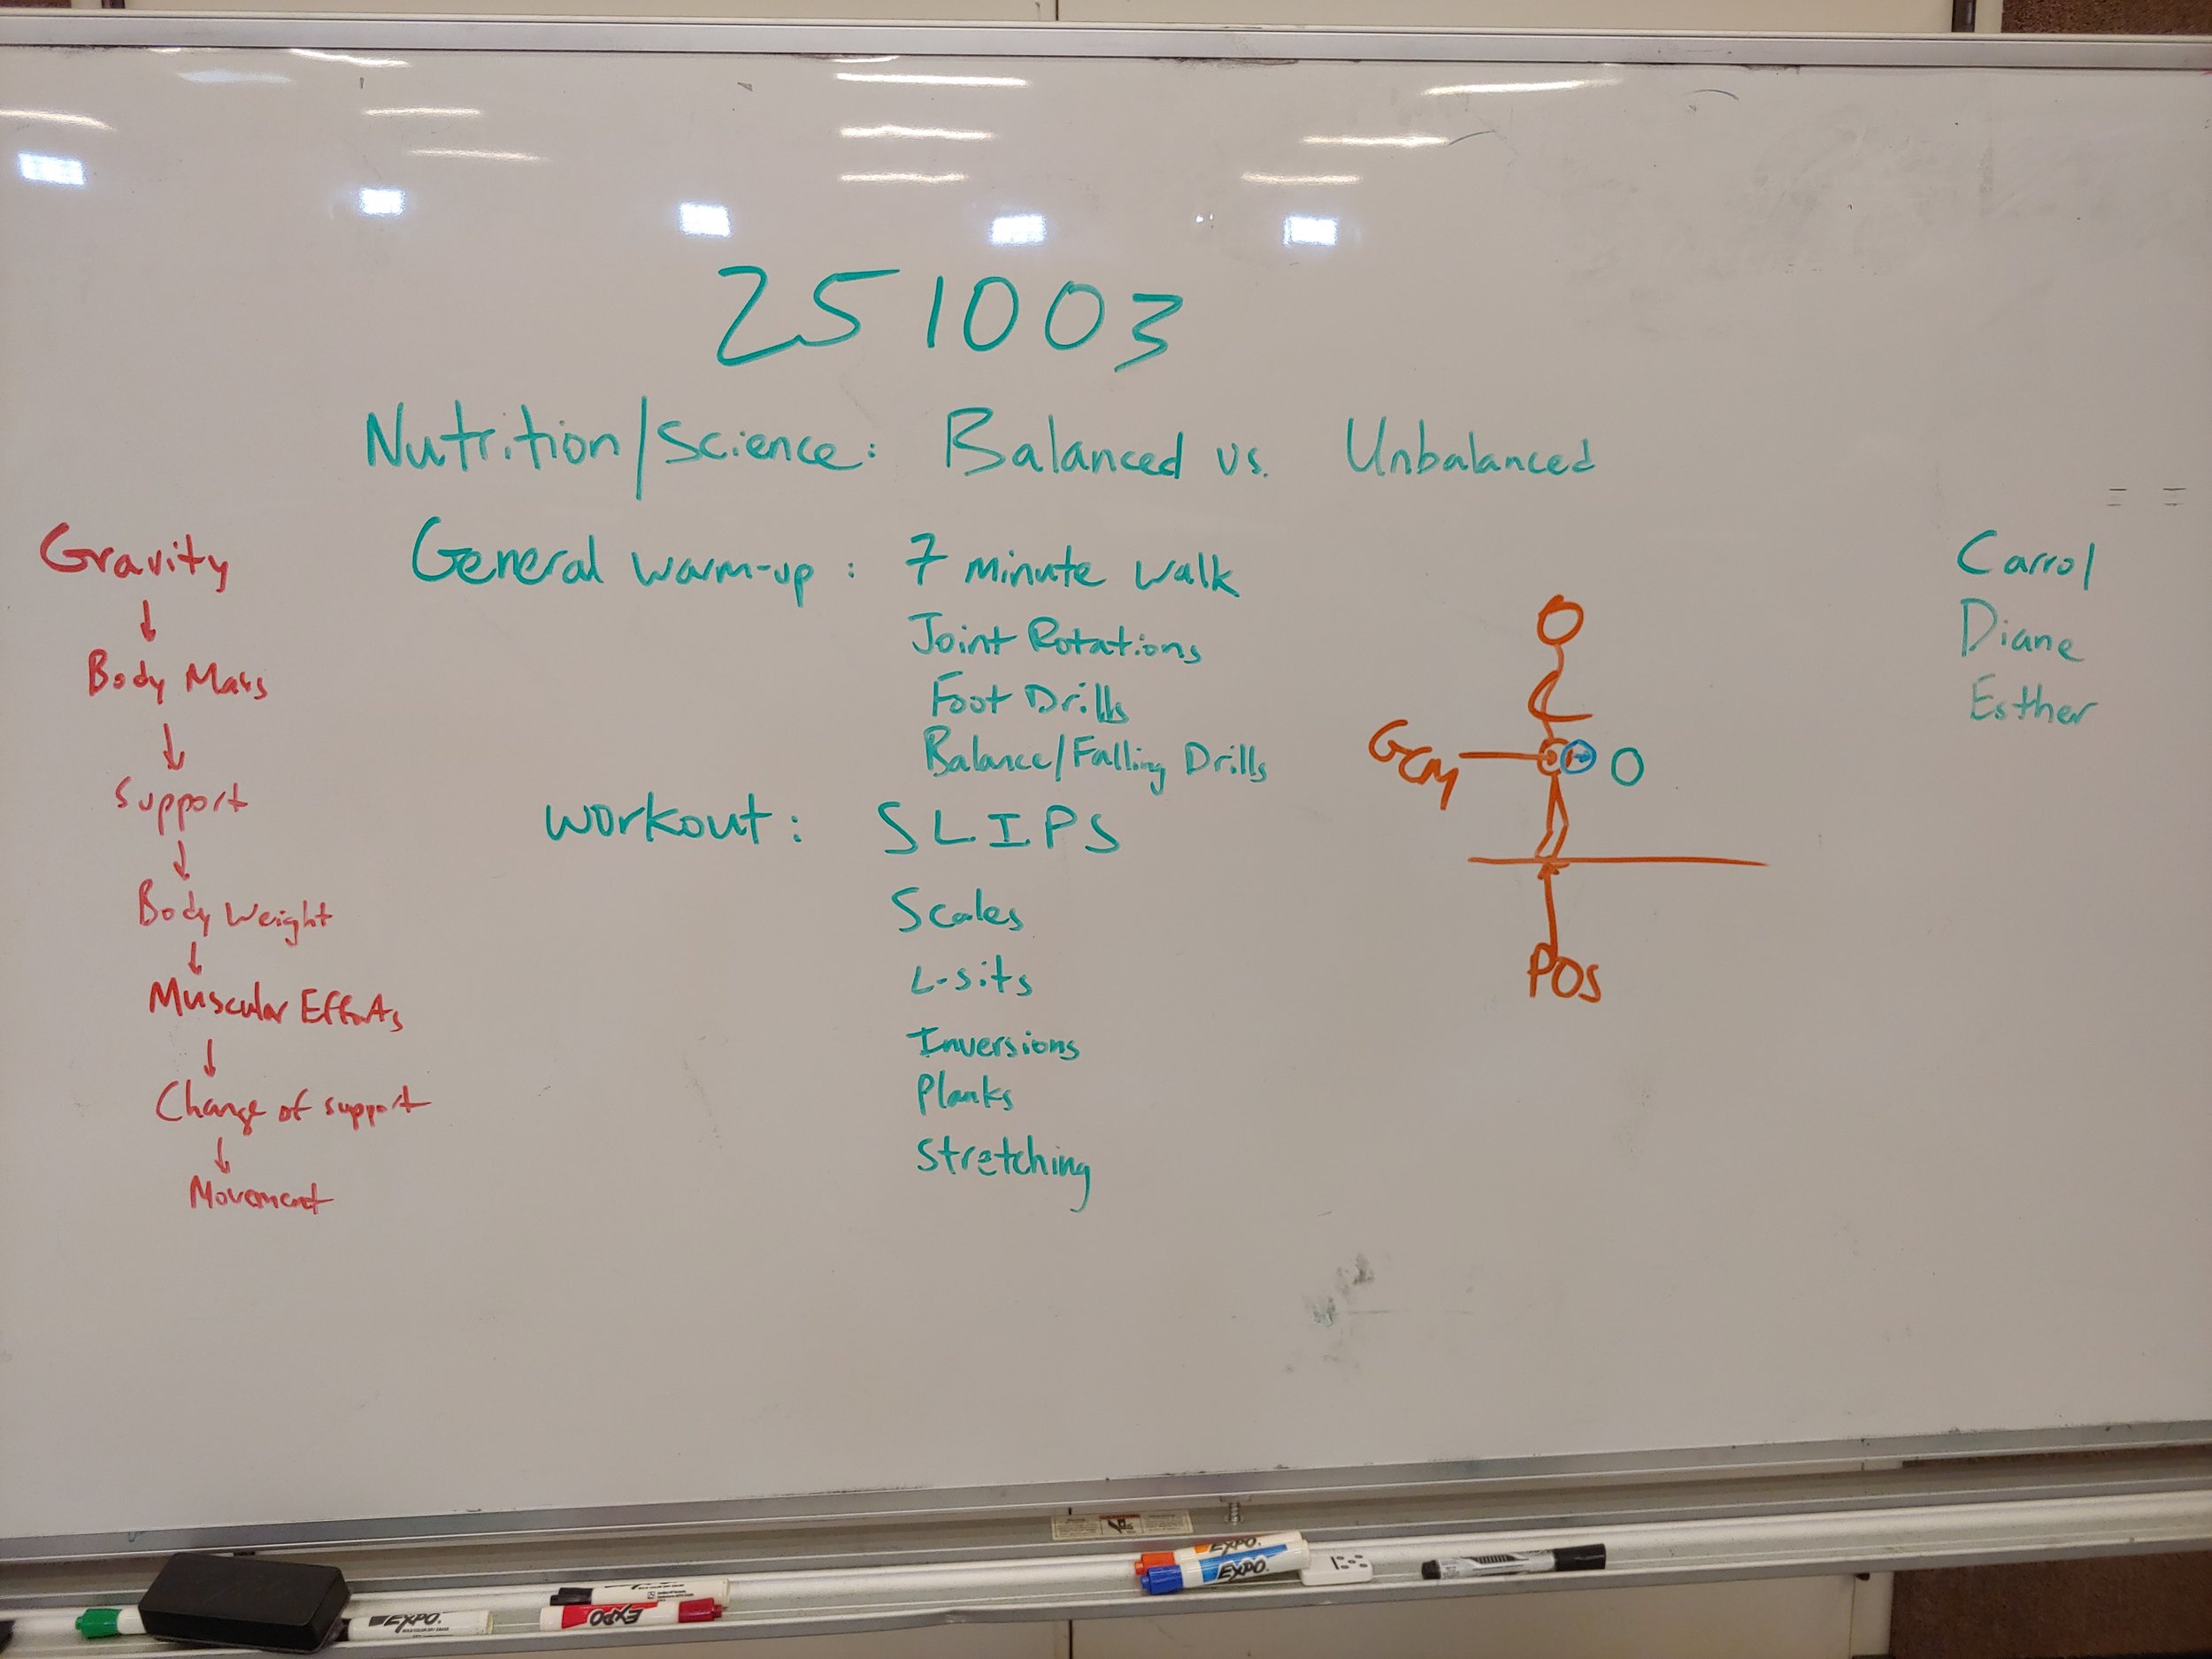 251003
Nutrition/Science: Balanced vs. Unbalanced
General warm-up: 7 minute walk
Joint Rotations
Foot Drills
Balance/Falling Drills
Workout: SLIPS
Scales
L-sits
Inversions
Planks
Stretching
Gravity
↓
Body Mass
↓
Support
↓
Body Weight
↓
Muscular Efforts
↓
Change of support
↓
Movement
GCM
POS
Carrol
Diane
Esther
EXPO
EXPO
EXPO
EXPO